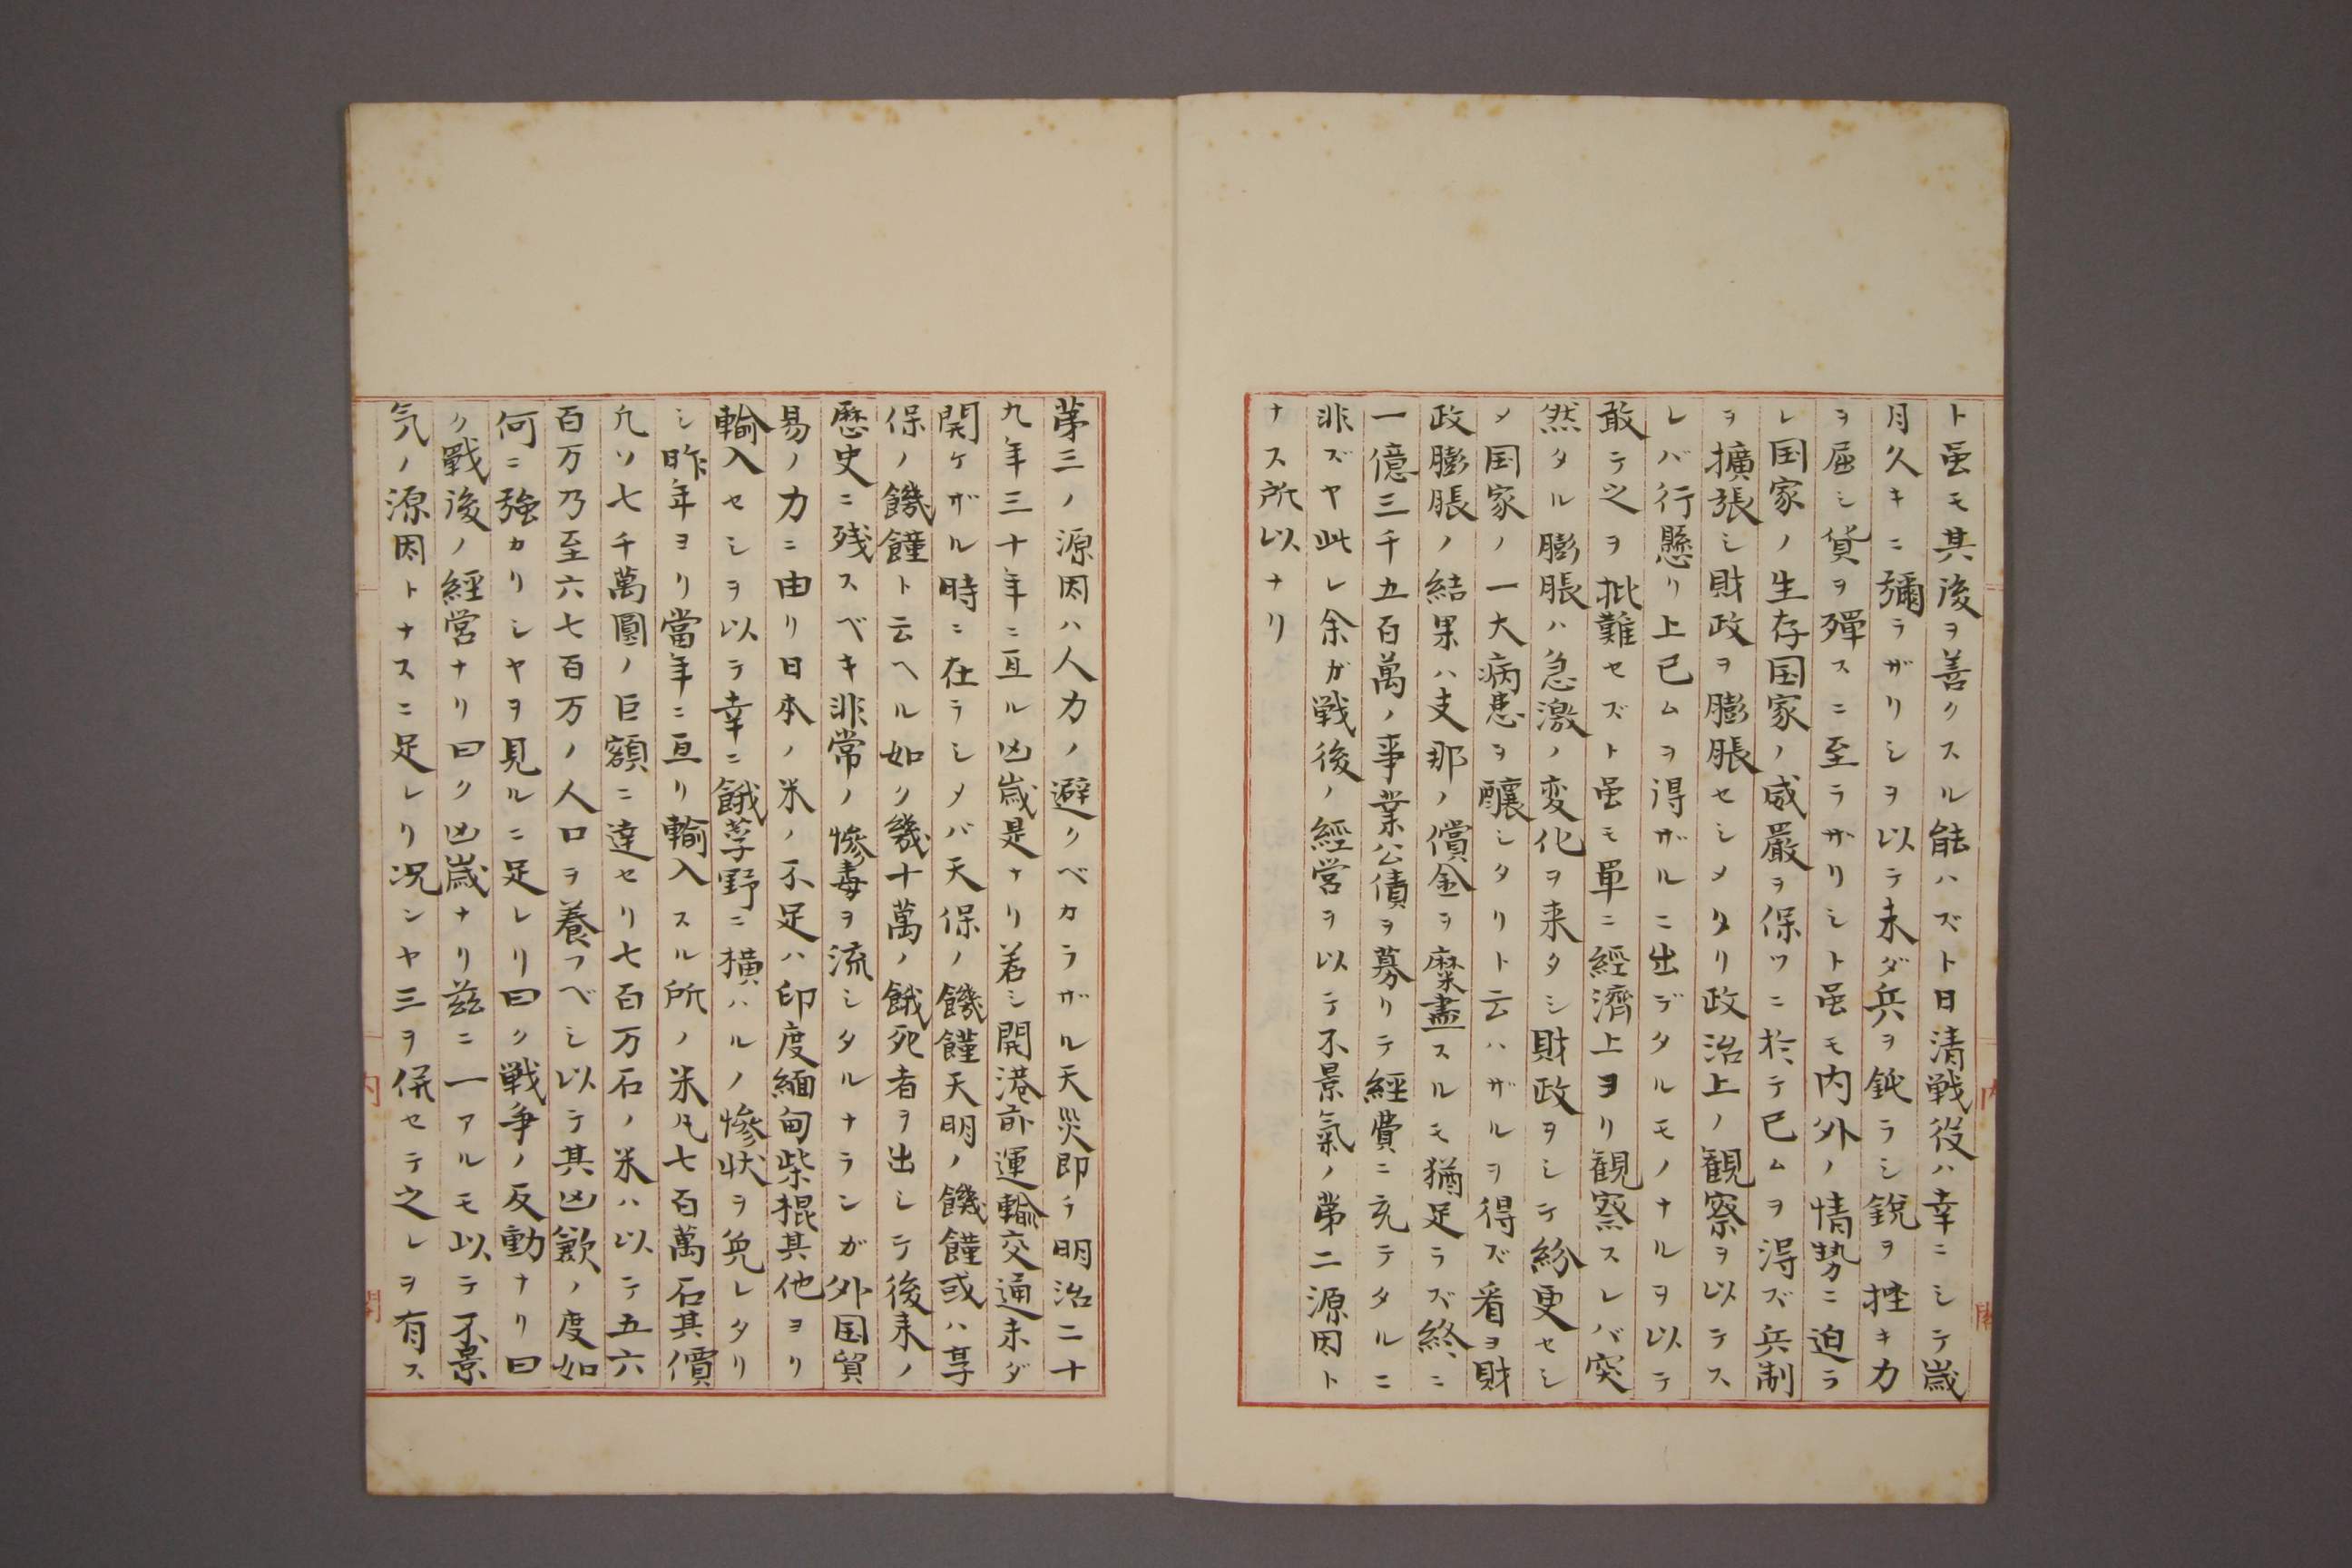 ト雖モ其後ヲ善クスル能ハズト日清戦役ハ幸ニシテ歳
月久キニ彌ラザリシヲ以テ未ダ兵ヲ鈍ラシ鋭ヲ挫キ力
ヲ屈シ貨ヲ殫スニ至ラザリシト雖モ内外ノ情勢ニ迫ラ
レ国家ノ生存国家ノ威嚴ヲ保ツニ於テ已ムヲ得ズ兵制
ヲ擴張シ財政ヲ膨脹セシメタリ政治上ノ観察ヲ以テス
レバ行懸リ上已ムヲ得ザルニ出デタルモノナルヲ以テ
敢テ之ヲ批難セズト雖モ單ニ經濟上ヨリ観察スレバ突
然タル膨脹ハ急激ノ変化ヲ来タシ財政ヲシテ紛更セシ
メ国家ノ一大病患ヲ釀シタリト云ハザルヲ得ズ看ヨ財
政膨脹ノ結果ハ支那ノ償金ヲ糜盡スルモ猶足ラズ終ニ
一億三千五百萬ノ事業公債ヲ募リテ經費ニ充テタルニ
非ズヤ此レ余ガ戦後ノ經営ヲ以テ不景氣ノ第二源因ト
ナス所以ナリ
第三ノ源因ハ人力ノ避クベカラザル天災即チ明治二十
九年三十年ニ亙ル凶歳是ナリ若シ開港前運輸交通未ダ
開ケザル時ニ在ラシメバ天保ノ饑饉天明ノ饑饉或ハ享
保ノ饑饉ト云ヘル如ク幾十萬ノ餓死者ヲ出シテ後来ノ
歴史ニ残スベキ非常ノ慘毒ヲ流シタルナランガ外国貿
易ノ力ニ由リ日本ノ米ノ不足ハ印度緬甸柴棍其他ヨリ
輸入セシヲ以テ幸ニ餓莩野ニ横ハルノ慘状ヲ免レタリ
シ昨年ヨリ當年ニ亙リ輸入スル所ノ米凡七百萬石其價
凡ソ七千萬圓ノ巨額ニ達セリ七百万石ノ米ハ以テ五六
百万乃至六七百万ノ人口ヲ養フベシ以テ其凶歉ノ度如
何ニ強カリシヤヲ見ルニ足レリ曰ク戦争ノ反動ナリ曰
ク戰後ノ經営ナリ曰ク凶歳ナリ茲ニ一アルモ以テ不景
気ノ源因トナスニ足レリ况ンヤ三ヲ併セテ之レヲ有ス
内
閣